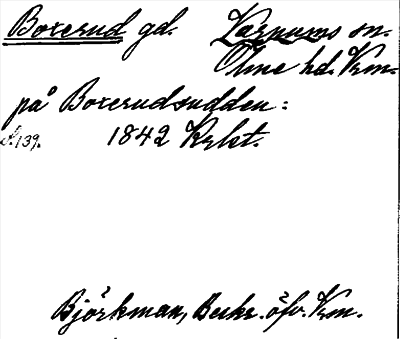 Boxerud gd. Varnums sn.
Ölme hd. Vrm.
på Boxerudsudden:
s. 139. 1842 Krkt.
Björkman, Beskr. öfv. Vrm.